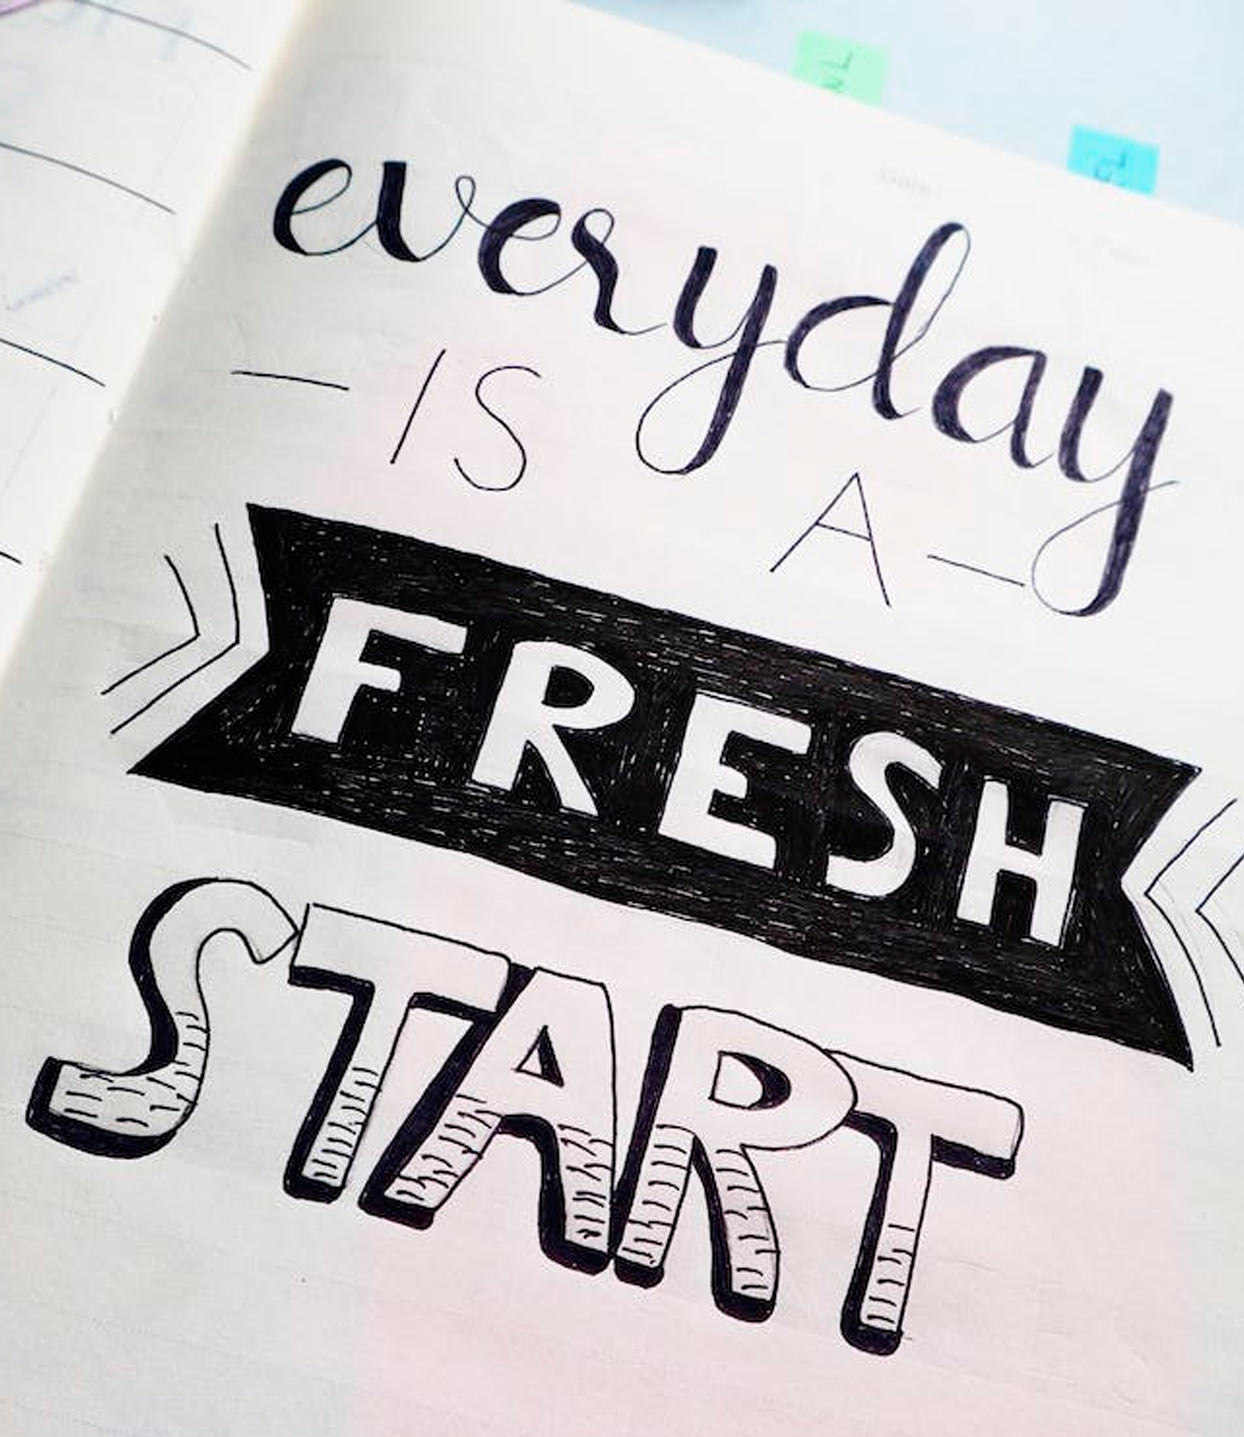 everyday
— IS A —
FRESH
START